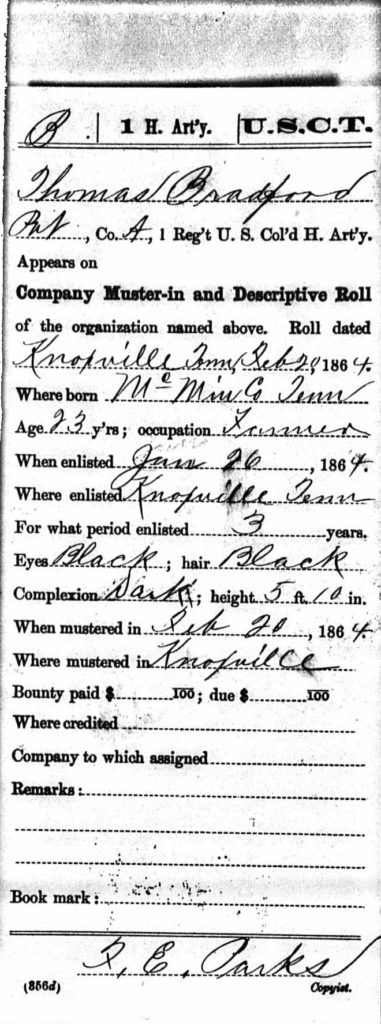 B. | 1 H. Art'y. | U.S.C.T.
Thomas Bradford
Pvt, Co. A, 1 Reg't U. S. Col'd H. Art'y.
Appears on
Company Muster-in and Descriptive Roll
of the organization named above. Roll dated
Knoxville Tenn, Feb 20, 1864.
Where born Mc Minn Co Tenn
Age 23 y'rs; occupation Farmer
When enlisted Jan 26, 1864.
Where enlisted Knoxville Tenn
For what period enlisted 3 years.
Eyes Black; hair Black
Complexion Dark; height 5 ft. 10 in.
When mustered in Feb 20, 1864
Where mustered in Knoxville
Bounty paid $ 100; due $ 100
Where credited
Company to which assigned
Remarks:
Book mark:
R. E. Parks
(356d) Copyist.